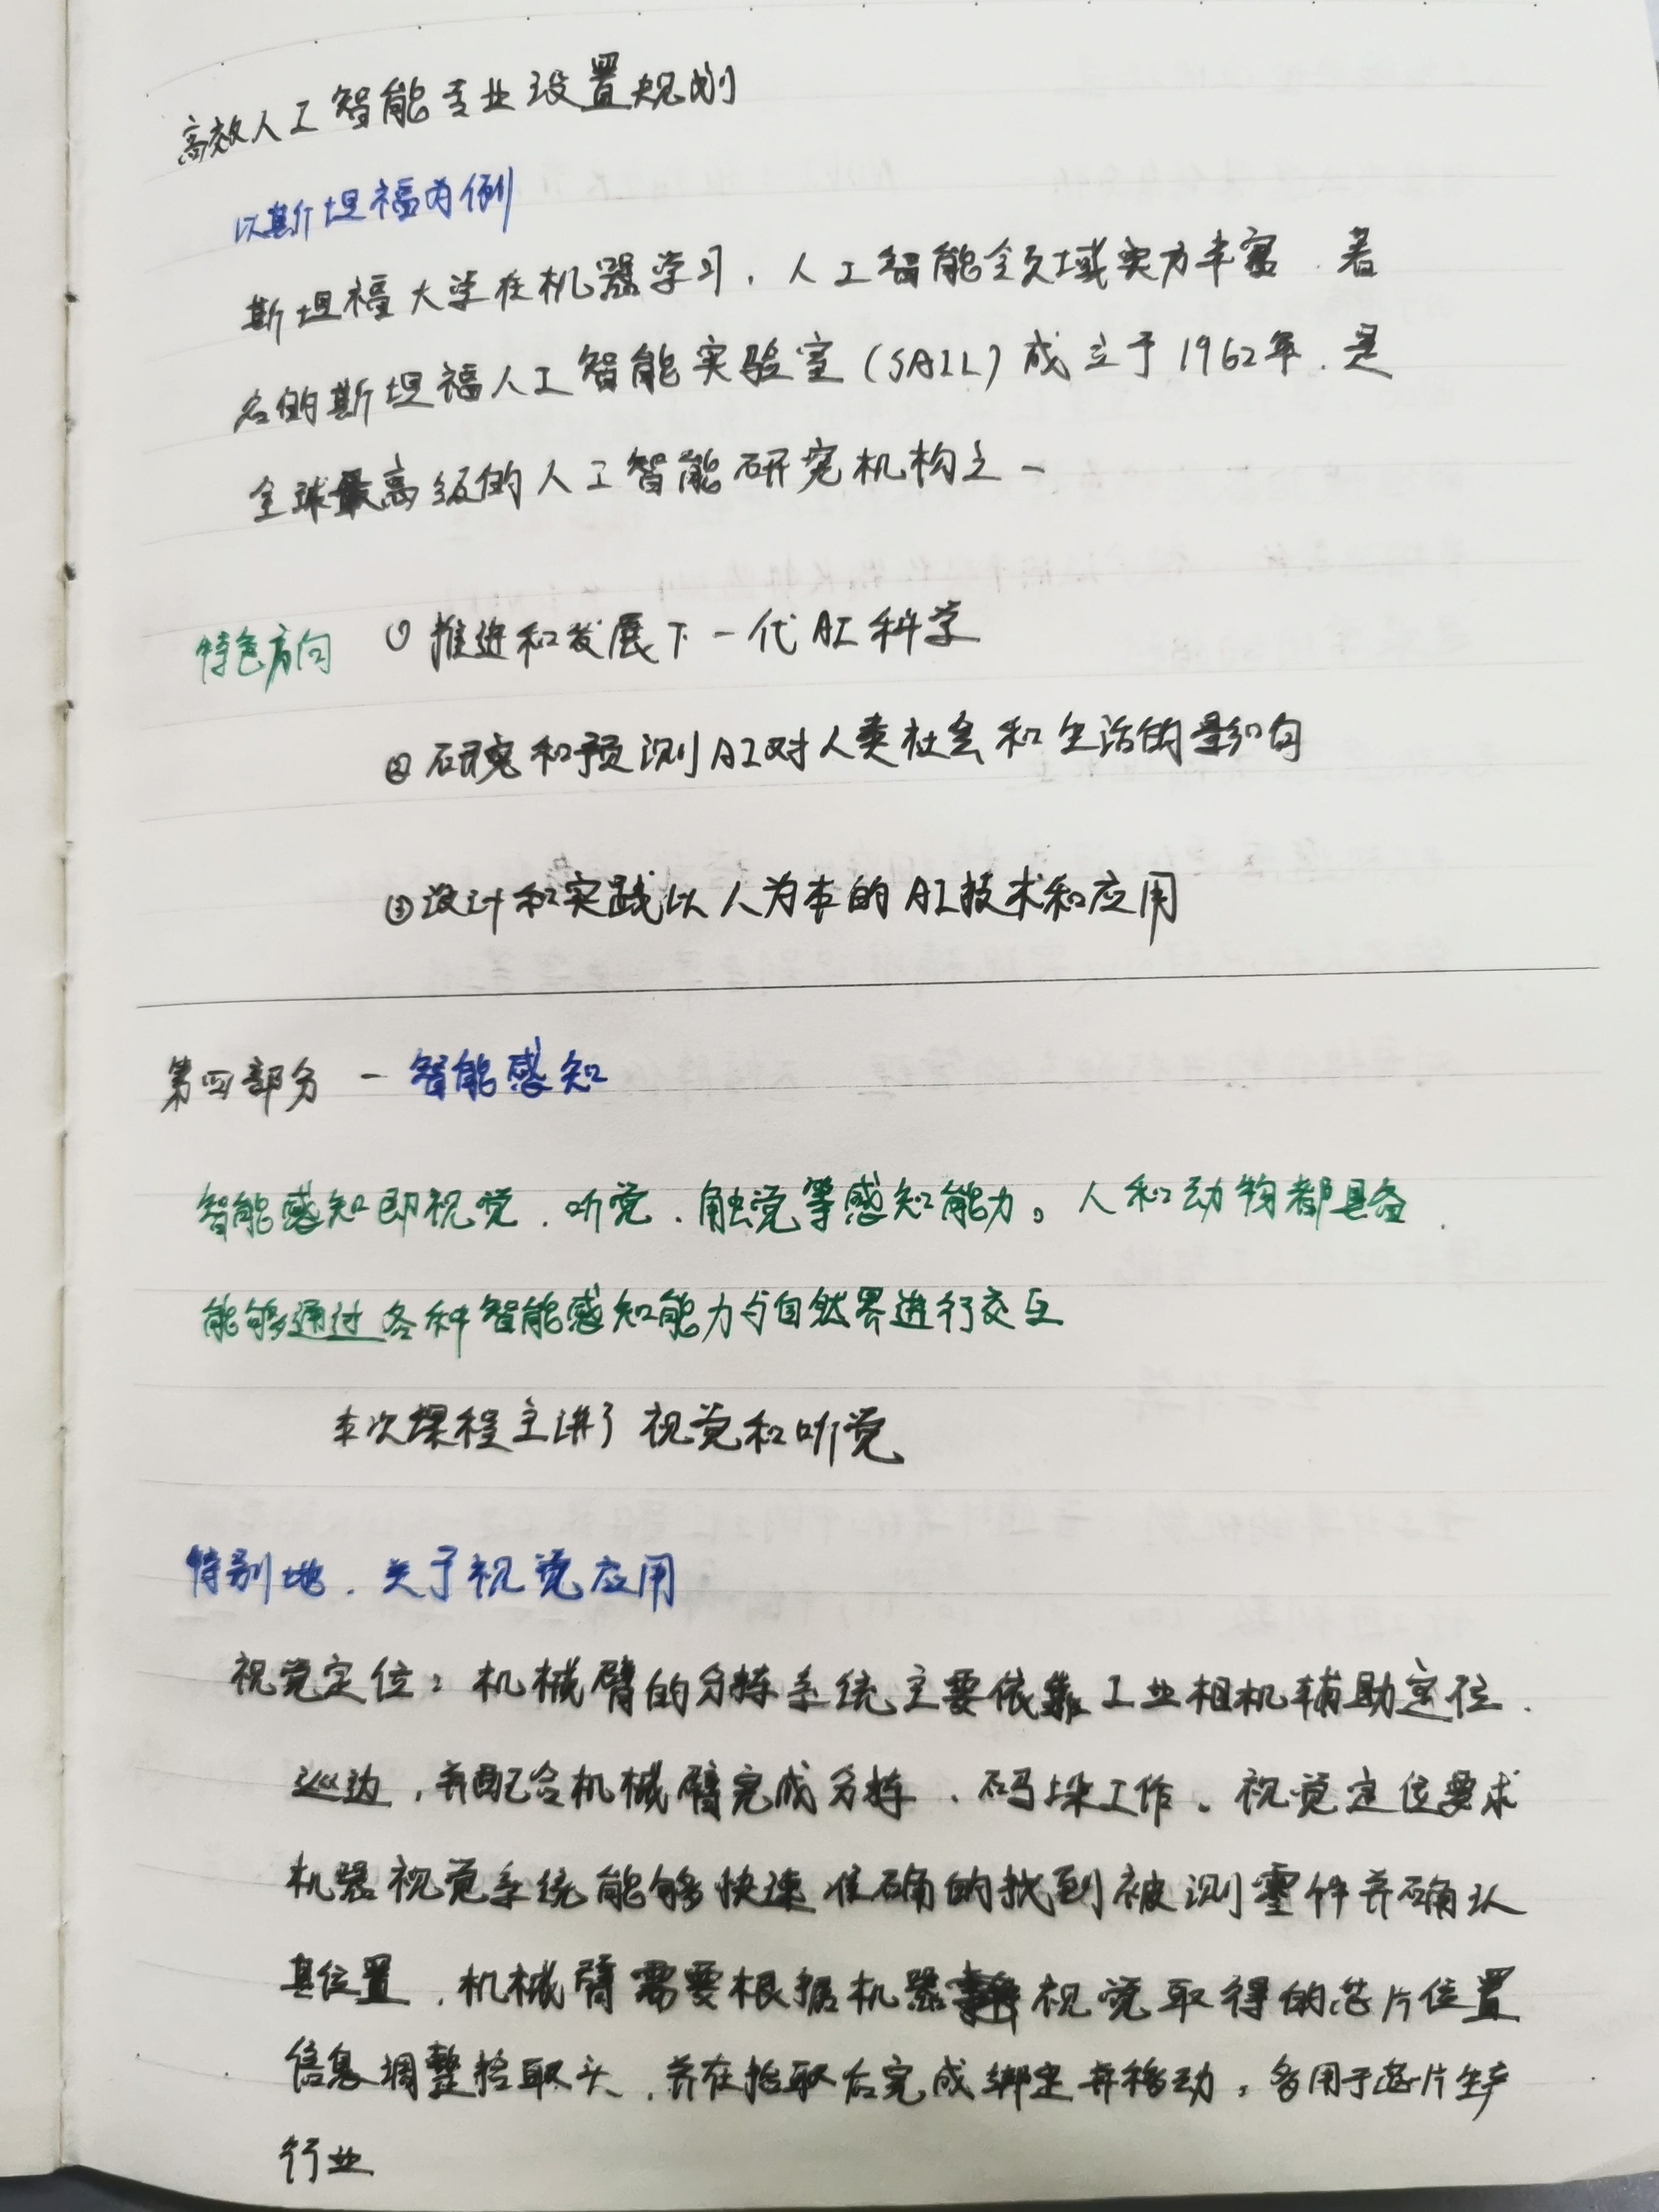 高效人工智能专业设置规则
以斯坦福为例
斯坦福大学在机器学习、人工智能领域实力丰富、著
名的斯坦福人工智能实验室(SAIL)成立于1962年、是
全球最高级的人工智能研究机构之一
特色方向 ① 推进和发展下一代AI科学
② 研究和预测AI对人类社会和生活的影响
③ 设计和实践以人为本的AI技术和应用
第四部分 - 智能感知
智能感知即视觉、听觉、触觉等感知能力。人和动物都具备、
能够通过各种智能感知能力与自然界进行交互
本次课程主讲了视觉和听觉
特别地、关于视觉应用
视觉定位：机械臂的分拣系统主要依靠工业相机辅助定位、
巡边，并配合机械臂完成分拣、码垛工作。视觉定位要求
机器视觉系统能够快速准确的找到被测零件并确认
其位置，机械臂需要根据机器视觉取得的芯片位置
信息调整拾取头，并在拾取后完成绑定并移动，多用于芯片生产
行业